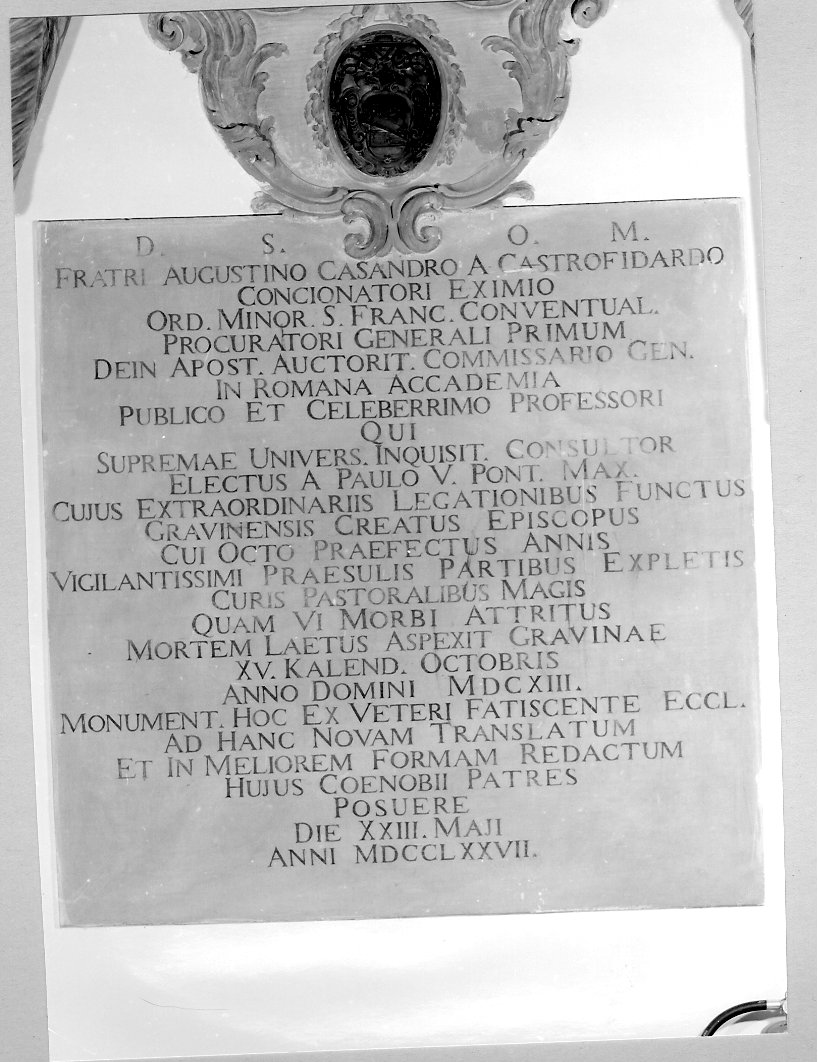 D. S. O. M.
FRATRI AUGUSTINO CASANDRO A CASTROFIDARDO
CONCIONATORI EXIMIO
ORD. MINOR. S. FRANC. CONVENTUAL.
PROCURATORI GENERALI PRIMUM
DEIN APOST. AUCTORIT. COMMISSARIO GEN.
IN ROMANA ACCADEMIA
PUBLICO ET CELEBERRIMO PROFESSORI
QUI
SUPREMAE UNIVERS. INQUISIT. CONSULTOR
ELECTUS A PAULO V. PONT. MAX.
CUJUS EXTRAORDINARIIS LEGATIONIBUS FUNCTUS
GRAVINENSIS CREATUS EPISCOPUS
CUI OCTO PRAEFECTUS ANNIS
VIGILANTISSIMI PRAESULIS PARTIBUS EXPLETIS
CURIS PASTORALIBUS MAGIS
QUAM VI MORBI ATTRITUS
MORTEM LAETUS ASPEXIT GRAVINAE
XV. KALEND. OCTOBRIS
ANNO DOMINI MDCXIII.
MONUMENT. HOC EX VETERI FATISCENTE ECCL.
AD HANC NOVAM TRANSLATUM
ET IN MELIOREM FORMAM REDACTUM
HUJUS COENOBII PATRES
POSUERE
DIE XXIII. MAJI
ANNI MDCCLXXVII.